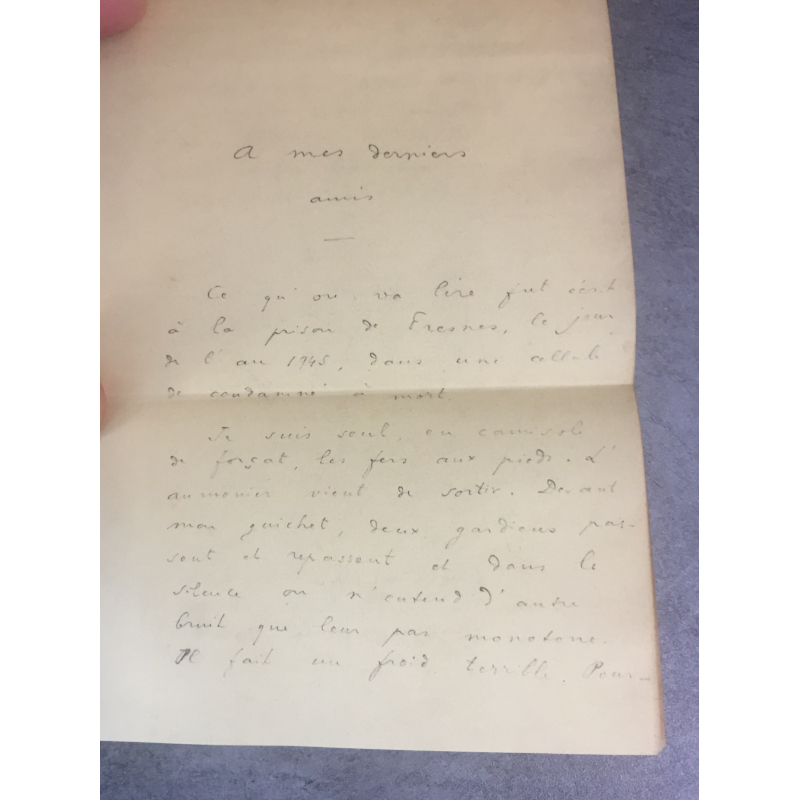 A mes derniers
amis
—
Ce qu'on va lire fut écrit
à la prison de Fresnes, le jour
de l'an 1945, dans une cellule
de condamné à mort.
Je suis seul, en camisole
de forçat, les fers aux pieds. L'
aumonier vient de sortir. Devant
mon guichet, deux gardiens pas-
sent et repassent et dans le
silence on n'entend d'autre
bruit que leur pas monotone.
Il fait un froid terrible. Pour-